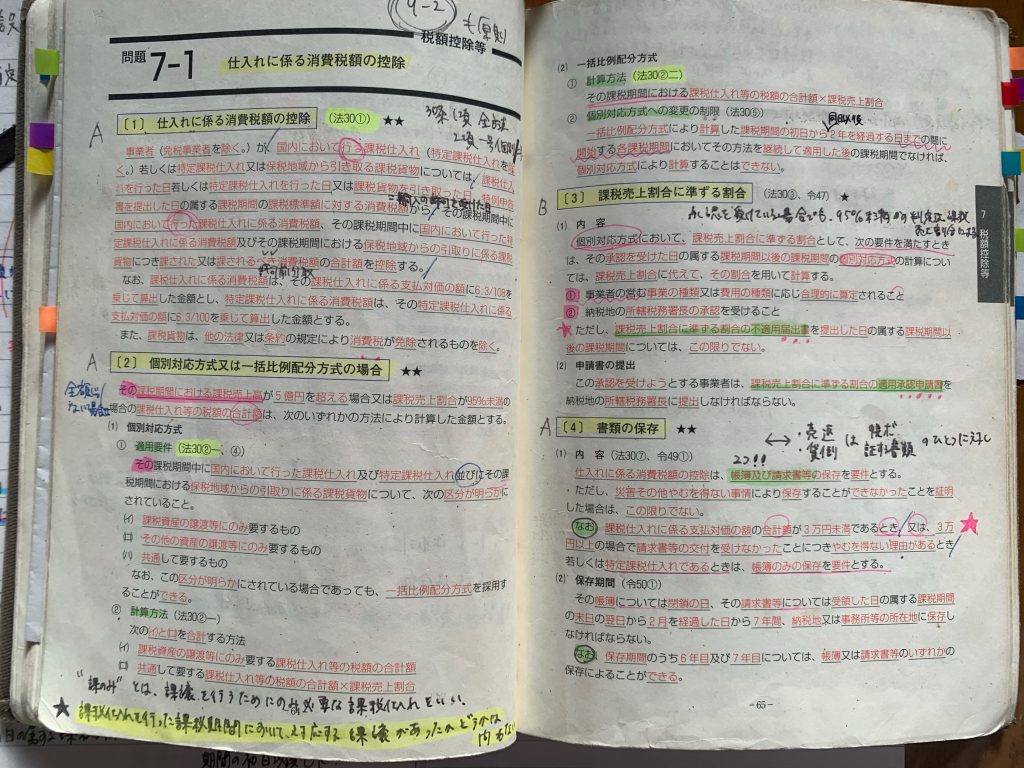 9-2 も(原則)
税額控除等
問題 7-1 仕入れに係る消費税額の控除
A 〔1〕 仕入れに係る消費税額の控除 (法30①) ★★
30条1項 全額
2項一号
事業者(免税事業者を除く。)が、国内において行う課税仕入れ(特定課税仕入れを除
く。)若しくは特定課税仕入れ又は保税地域から引き取る課税貨物については、課税仕入
れを行った日若しくは特定課税仕入れを行った日又は課税貨物を引き取った日、特例申告
書を提出した日の属する課税期間の課税標準額に対する消費税額から、その課税期間中に
国内において行った課税仕入れに係る消費税額、その課税期間中に国内において行った特
定課税仕入れに係る消費税額及びその課税期間における保税地域からの引取りに係る課税
貨物につき課された又は課されるべき消費税額の合計額を控除する。
なお、課税仕入れに係る消費税額は、その課税仕入れに係る支払対価の額に6.3/108を
乗じて算出した金額とし、特定課税仕入れに係る消費税額は、その特定課税仕入れに係る
支払対価の額に6.3/100を乗じて算出した金額とする。
また、課税貨物は、他の法律又は条約の規定により消費税が免除されるものを除く。
A 〔2〕 個別対応方式又は一括比例配分方式の場合 ★★
全額じゃ
ない場合は
その課税期間における課税売上高が5億円を超える場合又は課税売上割合が95%未満の
場合の課税仕入れ等の税額の合計額は、次のいずれかの方法により計算した金額とする。
(1) 個別対応方式
① 適用要件(法30②一、④)
その課税期間中に国内において行った課税仕入れ及び特定課税仕入れ並びにその課
税期間における保税地域からの引取りに係る課税貨物について、次の区分が明らかに
されていること。
(イ) 課税資産の譲渡等にのみ要するもの
(ロ) その他の資産の譲渡等にのみ要するもの
(ハ) 共通して要するもの
なお、この区分が明らかにされている場合であっても、一括比例配分方式を採用す
ることができる。
② 計算方法(法30②一)
次のイとロを合計する方法
(イ) 課税資産の譲渡等にのみ要する課税仕入れ等の税額の合計額
(ロ) 共通して要する課税仕入れ等の税額の合計額×課税売上割合
"課のみ" とは、課譲を行うためにのみ必要な課税仕入れをいい、
★ 課税仕入れを行った課税期間において対応する課譲があったかどうかは
問わない
(2) 一括比例配分方式
① 計算方法(法30②二)
その課税期間における課税仕入れ等の税額の合計額×課税売上割合
② 個別対応方式への変更の制限(法30⑤)
同日以後
一括比例配分方式により計算した課税期間の初日から2年を経過する日までの間に
開始する各課税期間においてその方法を継続して適用した後の課税期間でなければ、
個別対応方式により計算することはできない。
B 〔3〕 課税売上割合に準ずる割合 (法30③、令47) ★
承認を受けている場合でも、95%未満かの判定は課税
売上割合による
(1) 内 容
個別対応方式において、課税売上割合に準ずる割合として、次の要件を満たすとき
は、その承認を受けた日の属する課税期間以後の課税期間の個別対応方式の計算につい
ては、課税売上割合に代えて、その割合を用いて計算する。
① 事業者の営む事業の種類又は費用の種類に応じ合理的に算定されること
② 納税地の所轄税務署長の承認を受けること
★ ただし、課税売上割合に準ずる割合の不適用届出書を提出した日の属する課税期間以
後の課税期間については、この限りでない。
(2) 申請書の提出
この承認を受けようとする事業者は、課税売上割合に準ずる割合の適用承認申請書を
納税地の所轄税務署長に提出しなければならない。
A 〔4〕 書類の保存 ★★
↔ ・売返 ・貸倒 は 帳ボ 証する書類 のひとつ
2つ!!
(1) 内 容(法30⑦、令49①)
仕入れに係る消費税額の控除は、帳簿及び請求書等の保存を要件とする。
ただし、災害その他やむを得ない事情により保存することができなかったことを証明
した場合は、この限りでない。
なお 課税仕入れに係る支払対価の額の合計額が3万円未満であるとき、又は、3万
円以上の場合で請求書等の交付を受けなかったことにつきやむを得ない理由があるとき
若しくは特定課税仕入れであるときは、帳簿のみの保存を要件とする。
(2) 保存期間(令50①)
その帳簿については閉鎖の日、その請求書等については受領した日の属する課税期間
の末日の翌日から2月を経過した日から7年間、納税地又は事務所等の所在地に保存し
なければならない。
なお 保存期間のうち6年目及び7年目については、帳簿又は請求書等のいずれかの
保存によることができる。
7 税額控除等
-65-